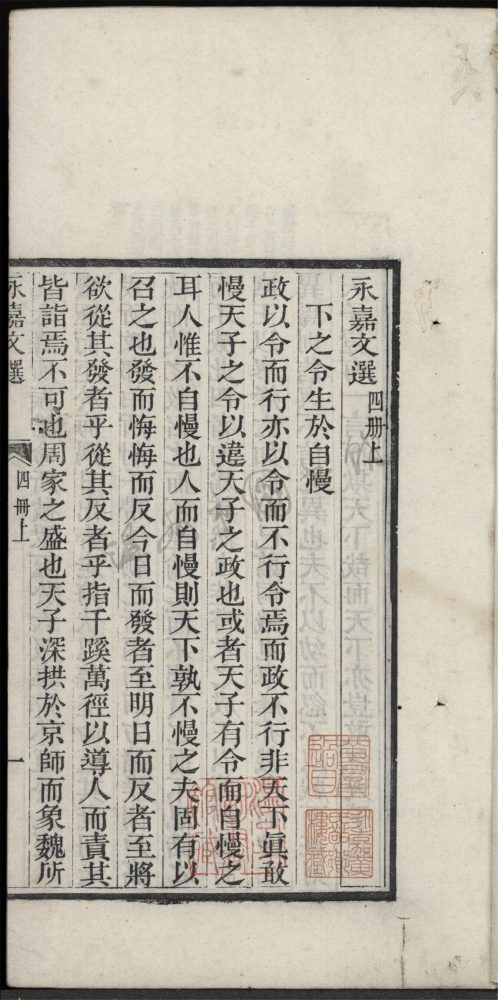 永嘉文選 四冊上
下之令生於自慢
政以令而行亦以令而不行令焉而政不行非天下眞敢
慢天子之令以違天子之政也或者天子有令而自慢之
耳人惟不自慢也人而自慢則天下孰不慢之夫固有以
召之也發而悔悔而反今日而發者至明日而反者至將
欲從其發者乎從其反者乎指千蹊萬徑以導人而責其
皆詣焉不可也周家之盛也天子深拱於京師而象魏所
永嘉文選 四冊上 一